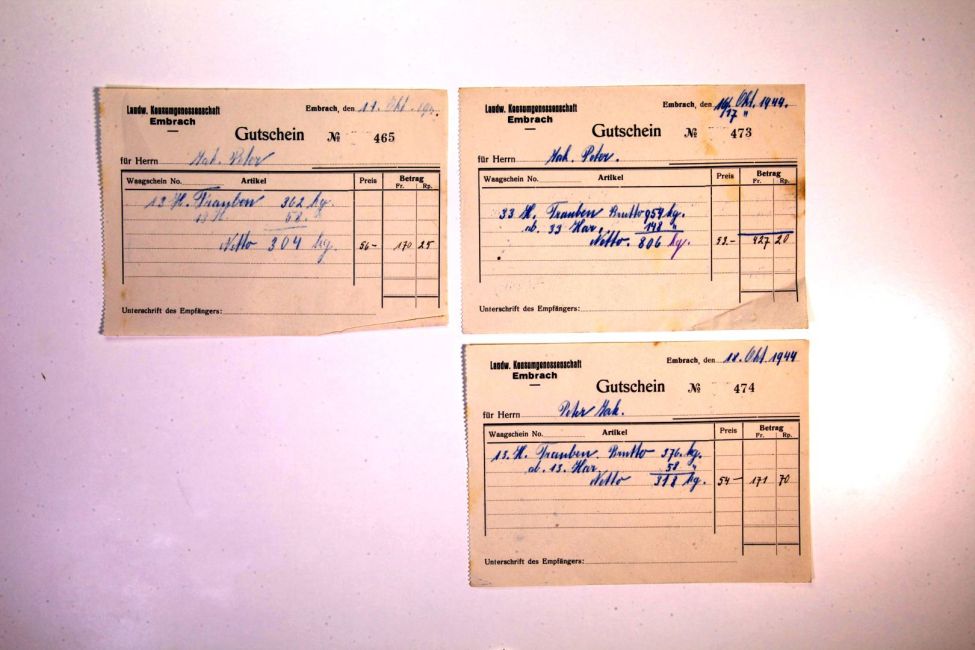 Landw. Konsumgenossenschaft
Embrach
Embrach, den 11. Okt. 194
Gutschein № 465
für Herrn Jak. Peter
Waagschein No. Artikel Preis Betrag
Fr. Rp.
13 H. Trauben 362 kg.
13 H. 58 "
Netto 304 kg. 56- 170 25
Unterschrift des Empfängers:
Landw. Konsumgenossenschaft
Embrach
Embrach, den 16. Okt. 1944.
/17 "
Gutschein № 473
für Herrn Jak. Peter.
Waagschein No. Artikel Preis Betrag
Fr. Rp.
33 H. Trauben Brutto 954 kg.
ab. 33 Har. 148 "
Netto. 806 kg. 53.- 427 20
Unterschrift des Empfängers:
Landw. Konsumgenossenschaft
Embrach
Embrach, den 18. Okt 1944
Gutschein № 474
für Herrn Peter Jak.
Waagschein No. Artikel Preis Betrag
Fr. Rp.
13. H. Trauben. Brutto 376. kg.
ab. 13. Har. 58 "
Netto 318 kg. 54- 171 70
Unterschrift des Empfängers: